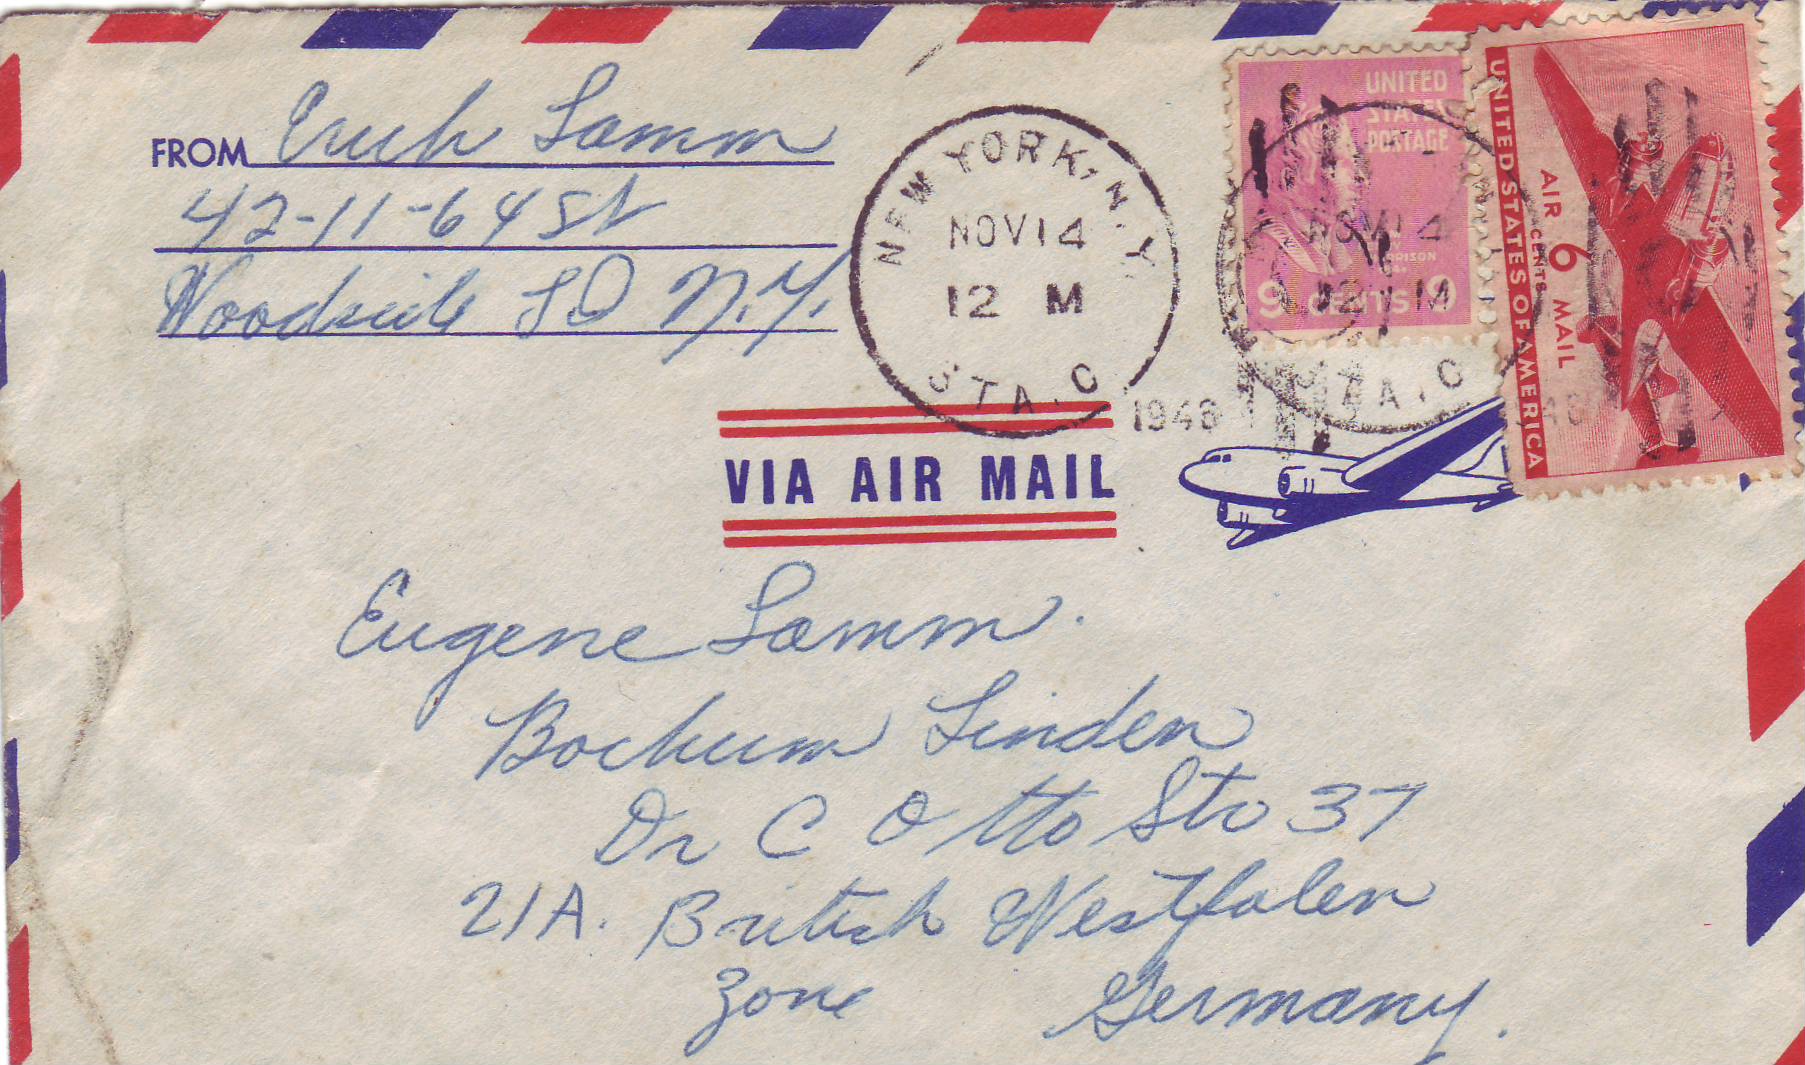 FROM Erich Lamm
42-11-64 St
Woodside L I N.Y.
NEW YORK, N.Y.
NOV 14
12 M
STA. O
1948
UNITED
STATES
POSTAGE
9 CENTS 9
UNITED STATES OF AMERICA
AIR MAIL
6 CENTS
NOV 14
12 M
STA. O
VIA AIR MAIL
Eugene Lamm.
Bochum Linden
Dr C Otto Str 37
21A. British Westfalen
Zone Germany.